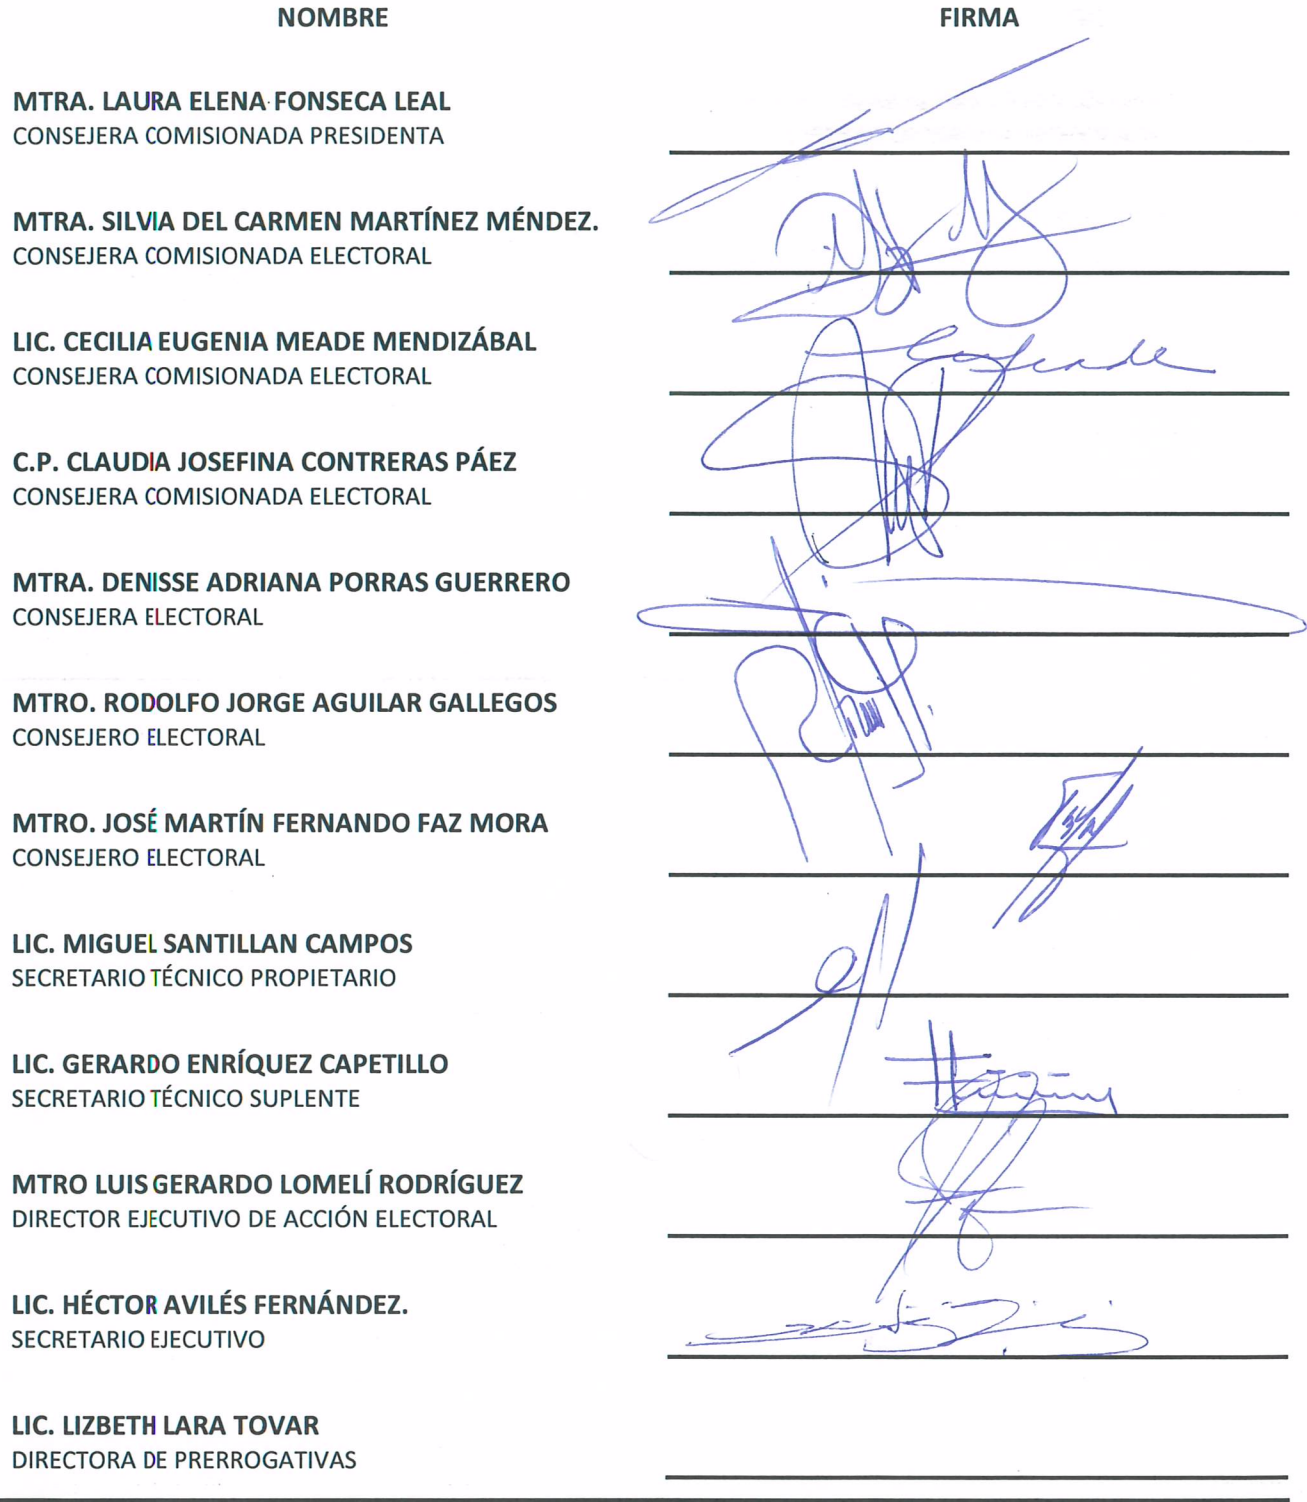 NOMBRE FIRMA
MTRA. LAURA ELENA FONSECA LEAL
CONSEJERA COMISIONADA PRESIDENTA
MTRA. SILVIA DEL CARMEN MARTÍNEZ MÉNDEZ.
CONSEJERA COMISIONADA ELECTORAL
LIC. CECILIA EUGENIA MEADE MENDIZÁBAL
CONSEJERA COMISIONADA ELECTORAL
C.P. CLAUDIA JOSEFINA CONTRERAS PÁEZ
CONSEJERA COMISIONADA ELECTORAL
MTRA. DENISSE ADRIANA PORRAS GUERRERO
CONSEJERA ELECTORAL
MTRO. RODOLFO JORGE AGUILAR GALLEGOS
CONSEJERO ELECTORAL
MTRO. JOSÉ MARTÍN FERNANDO FAZ MORA
CONSEJERO ELECTORAL
LIC. MIGUEL SANTILLAN CAMPOS
SECRETARIO TÉCNICO PROPIETARIO
LIC. GERARDO ENRÍQUEZ CAPETILLO
SECRETARIO TÉCNICO SUPLENTE
MTRO LUIS GERARDO LOMELÍ RODRÍGUEZ
DIRECTOR EJECUTIVO DE ACCIÓN ELECTORAL
LIC. HÉCTOR AVILÉS FERNÁNDEZ.
SECRETARIO EJECUTIVO
LIC. LIZBETH LARA TOVAR
DIRECTORA DE PRERROGATIVAS